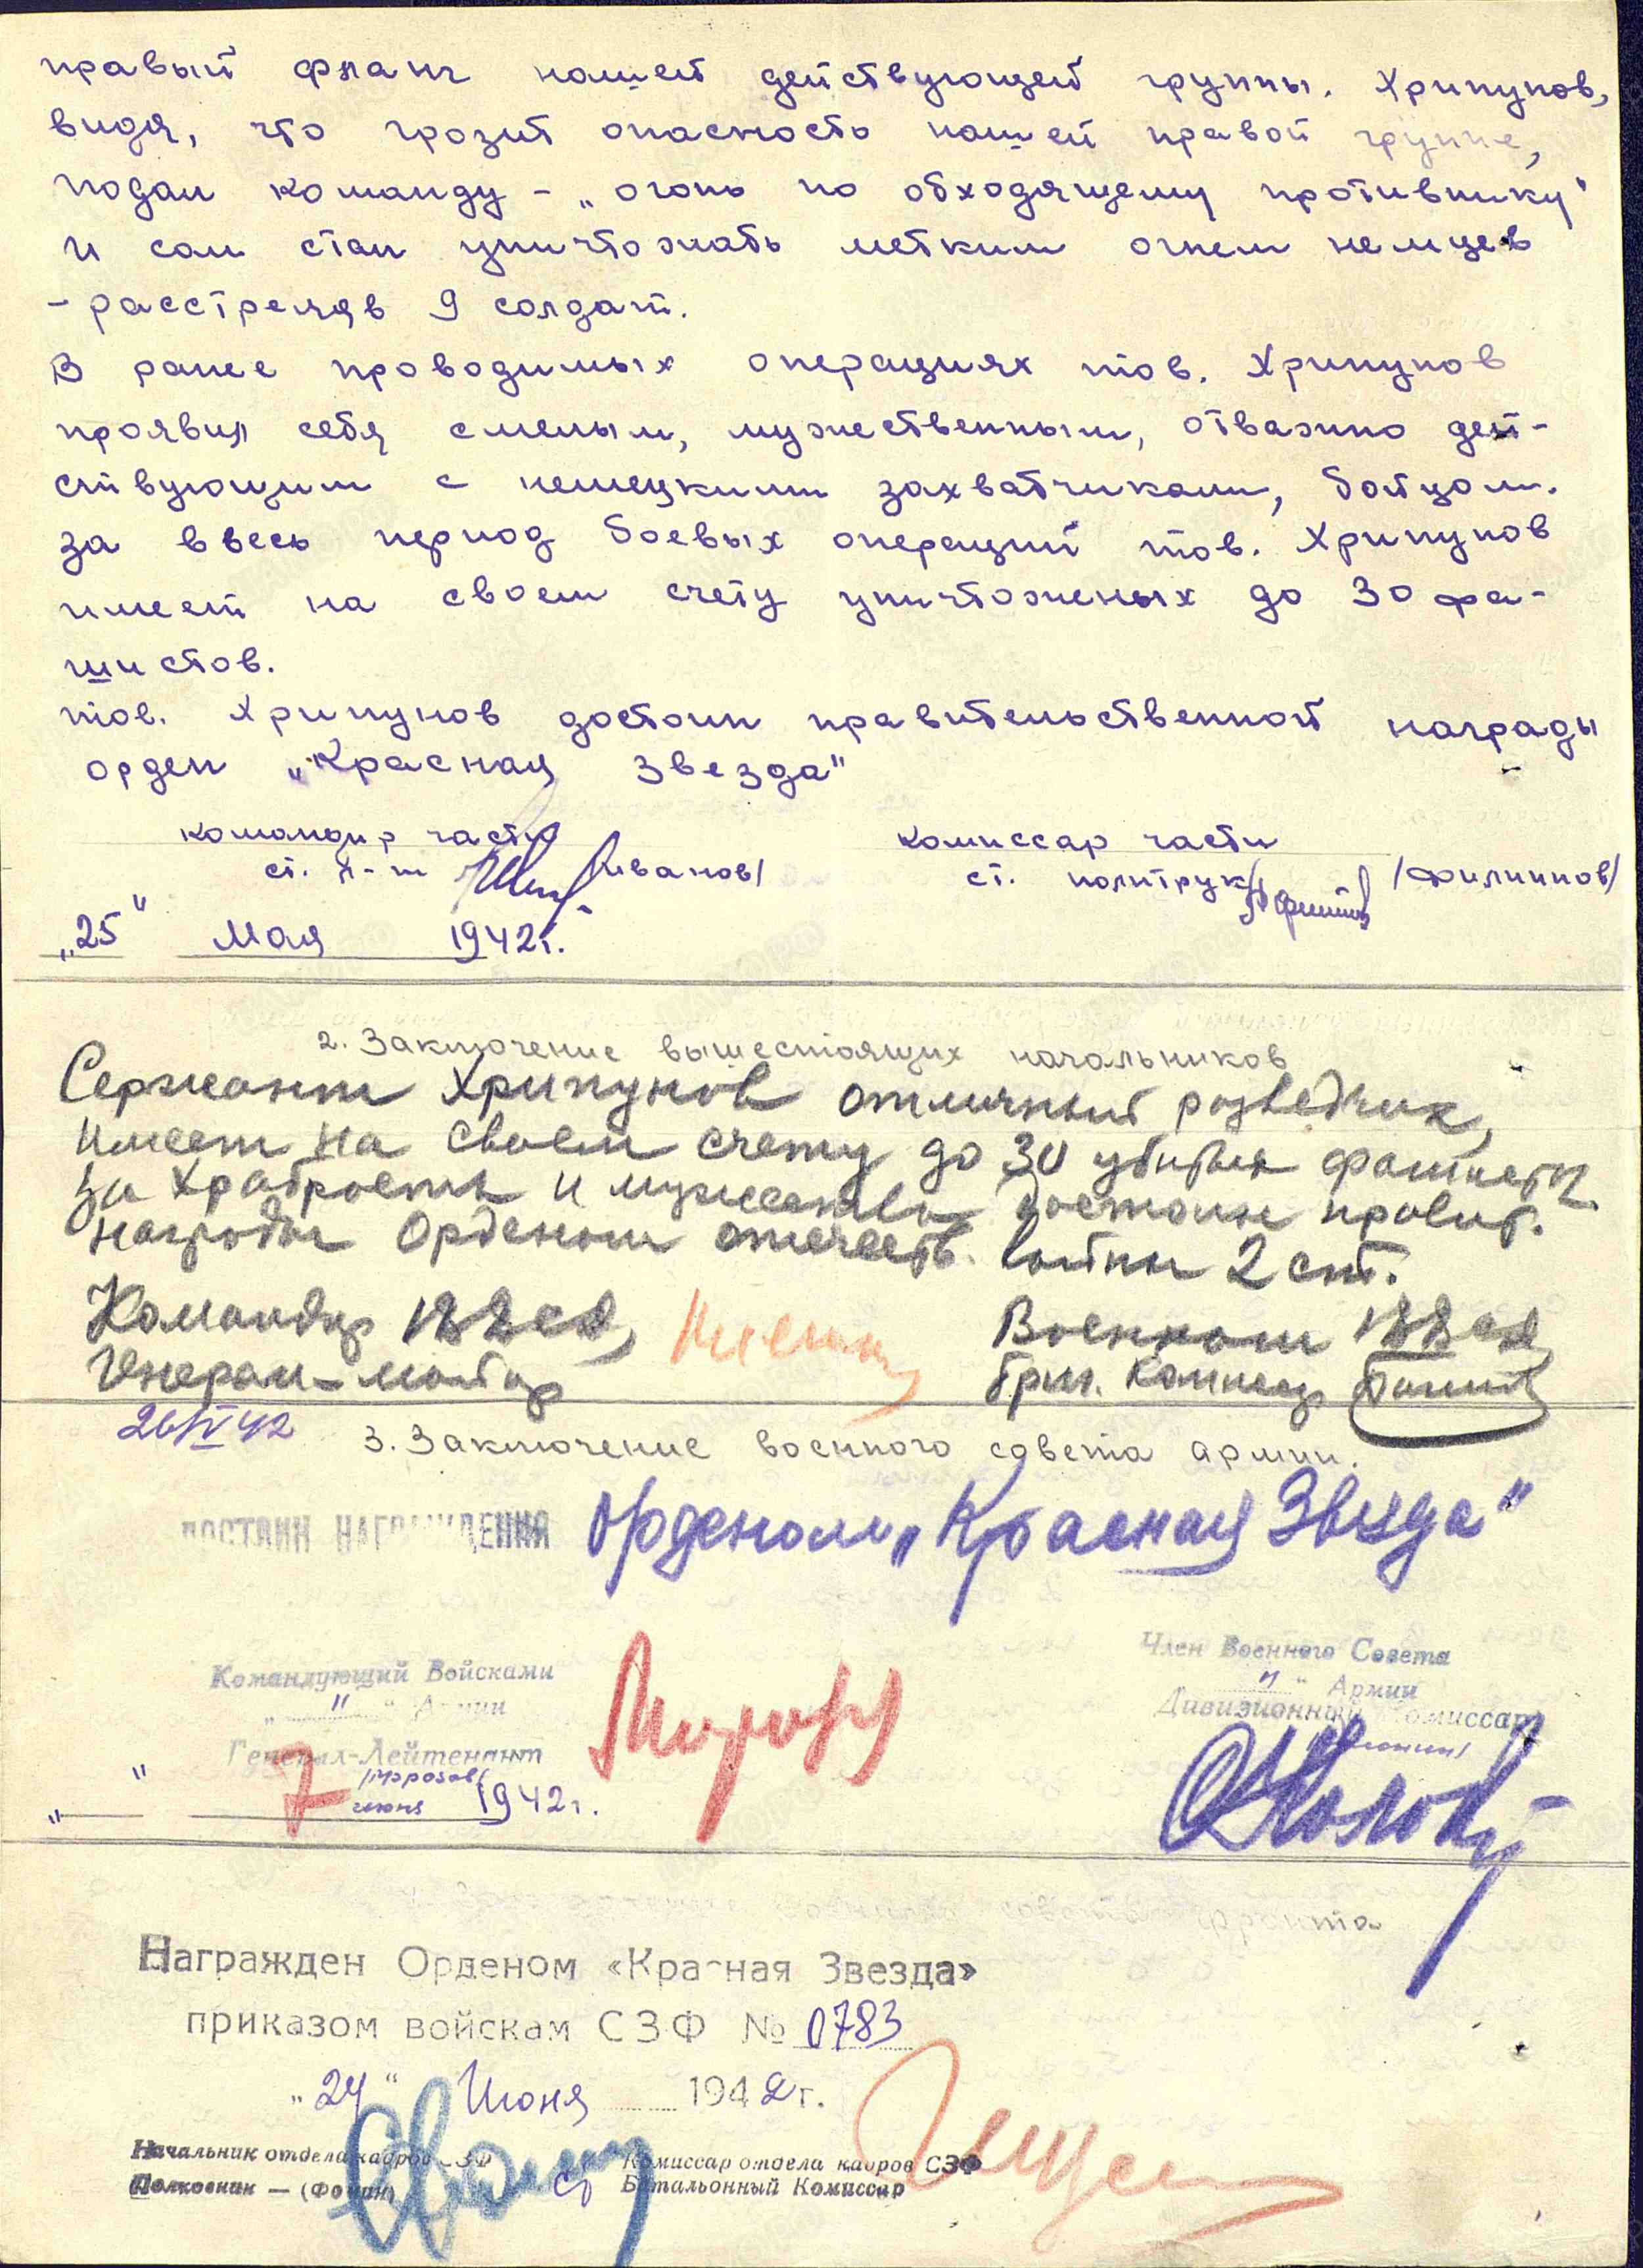 правый фланг нашей действующей группы. Хрипунов,
видя, что грозит опасность нашей правой группе,
подал команду - „огонь по обходящему противнику"
и сам стал уничтожать метким огнем немцев
- расстреляв 9 солдат.
В ранее проводимых операциях тов. Хрипунов
проявил себя смелым, мужественным, отважно дей-
ствующим с немецкими захватчиками, бойцом.
За ввесь период боевых операций тов. Хрипунов
имеет на своем счету уничтоженых до 30 фа-
шистов.
тов. Хрипунов достоин правительственной награды
орден „Красная Звезда"
командир части
комиссар части
ст. л-т /Иванов/
ст. политрук /Филиппов/
„25" Мая 1942г.
2. Заключение вышестоящих начальников
Сержант Хрипунов отличный разведчик,
имеет на своем счету до 30 убитых фашистов
За храбрость и мужество достоин правит.
награды Орденом отечеств. войны 2 ст.
Командир 188 сд,
Военком 188 сд
Генерал-майор
бриг. комиссар
26/IV 42
3. Заключение военного совета армии.
ДОСТОИН НАГРАЖДЕНИЯ Орденом „Красная Звезда"
Командующий Войсками
Член Военного Совета
„ 11 " Армии
„ 11 " Армии
Генерал-Лейтенант
Дивизионный Комиссар
/Морозов/
" 7 июня 1942г.
военного совета фронта
Награжден Орденом «Красная Звезда»
приказом войскам СЗФ № 0783
„24" Июня 1942г.
Начальник отдела кадров СЗФ
Комиссар отдела кадров СЗФ
Полковник — (Фомин)
Ст Батальонный Комиссар